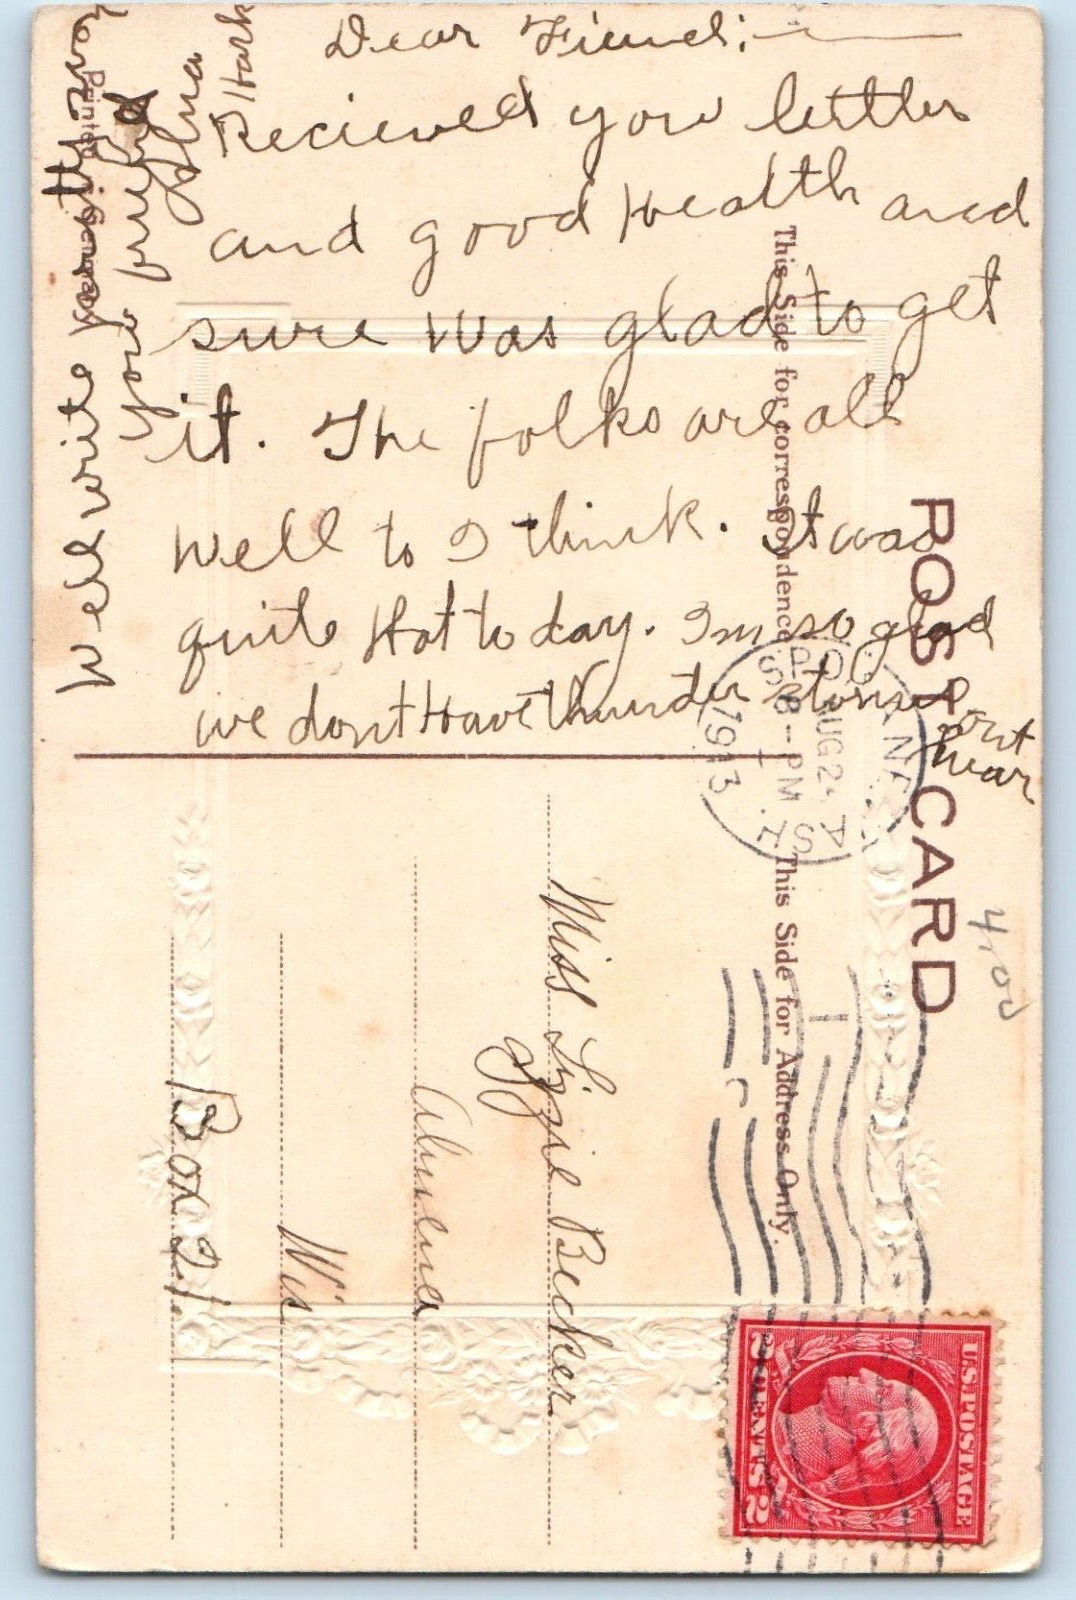 Dear Friend:
Recieved your letter
and good Health and
sure was glad to get
it. The folks are all
well to I think. It was
quite Hot to day. Im so glad
we dont Have thunder storms out
hear
Well write
your friend
Alma
Stark
Printed in Germany
POST CARD
This Side for correspondence
This Side for Address Only.
AUG 2
8-PM
1913
4.00
Miss Lizzie Becker
Almena
Wis
Box 21.
U.S. POSTAGE
2 CENTS 2